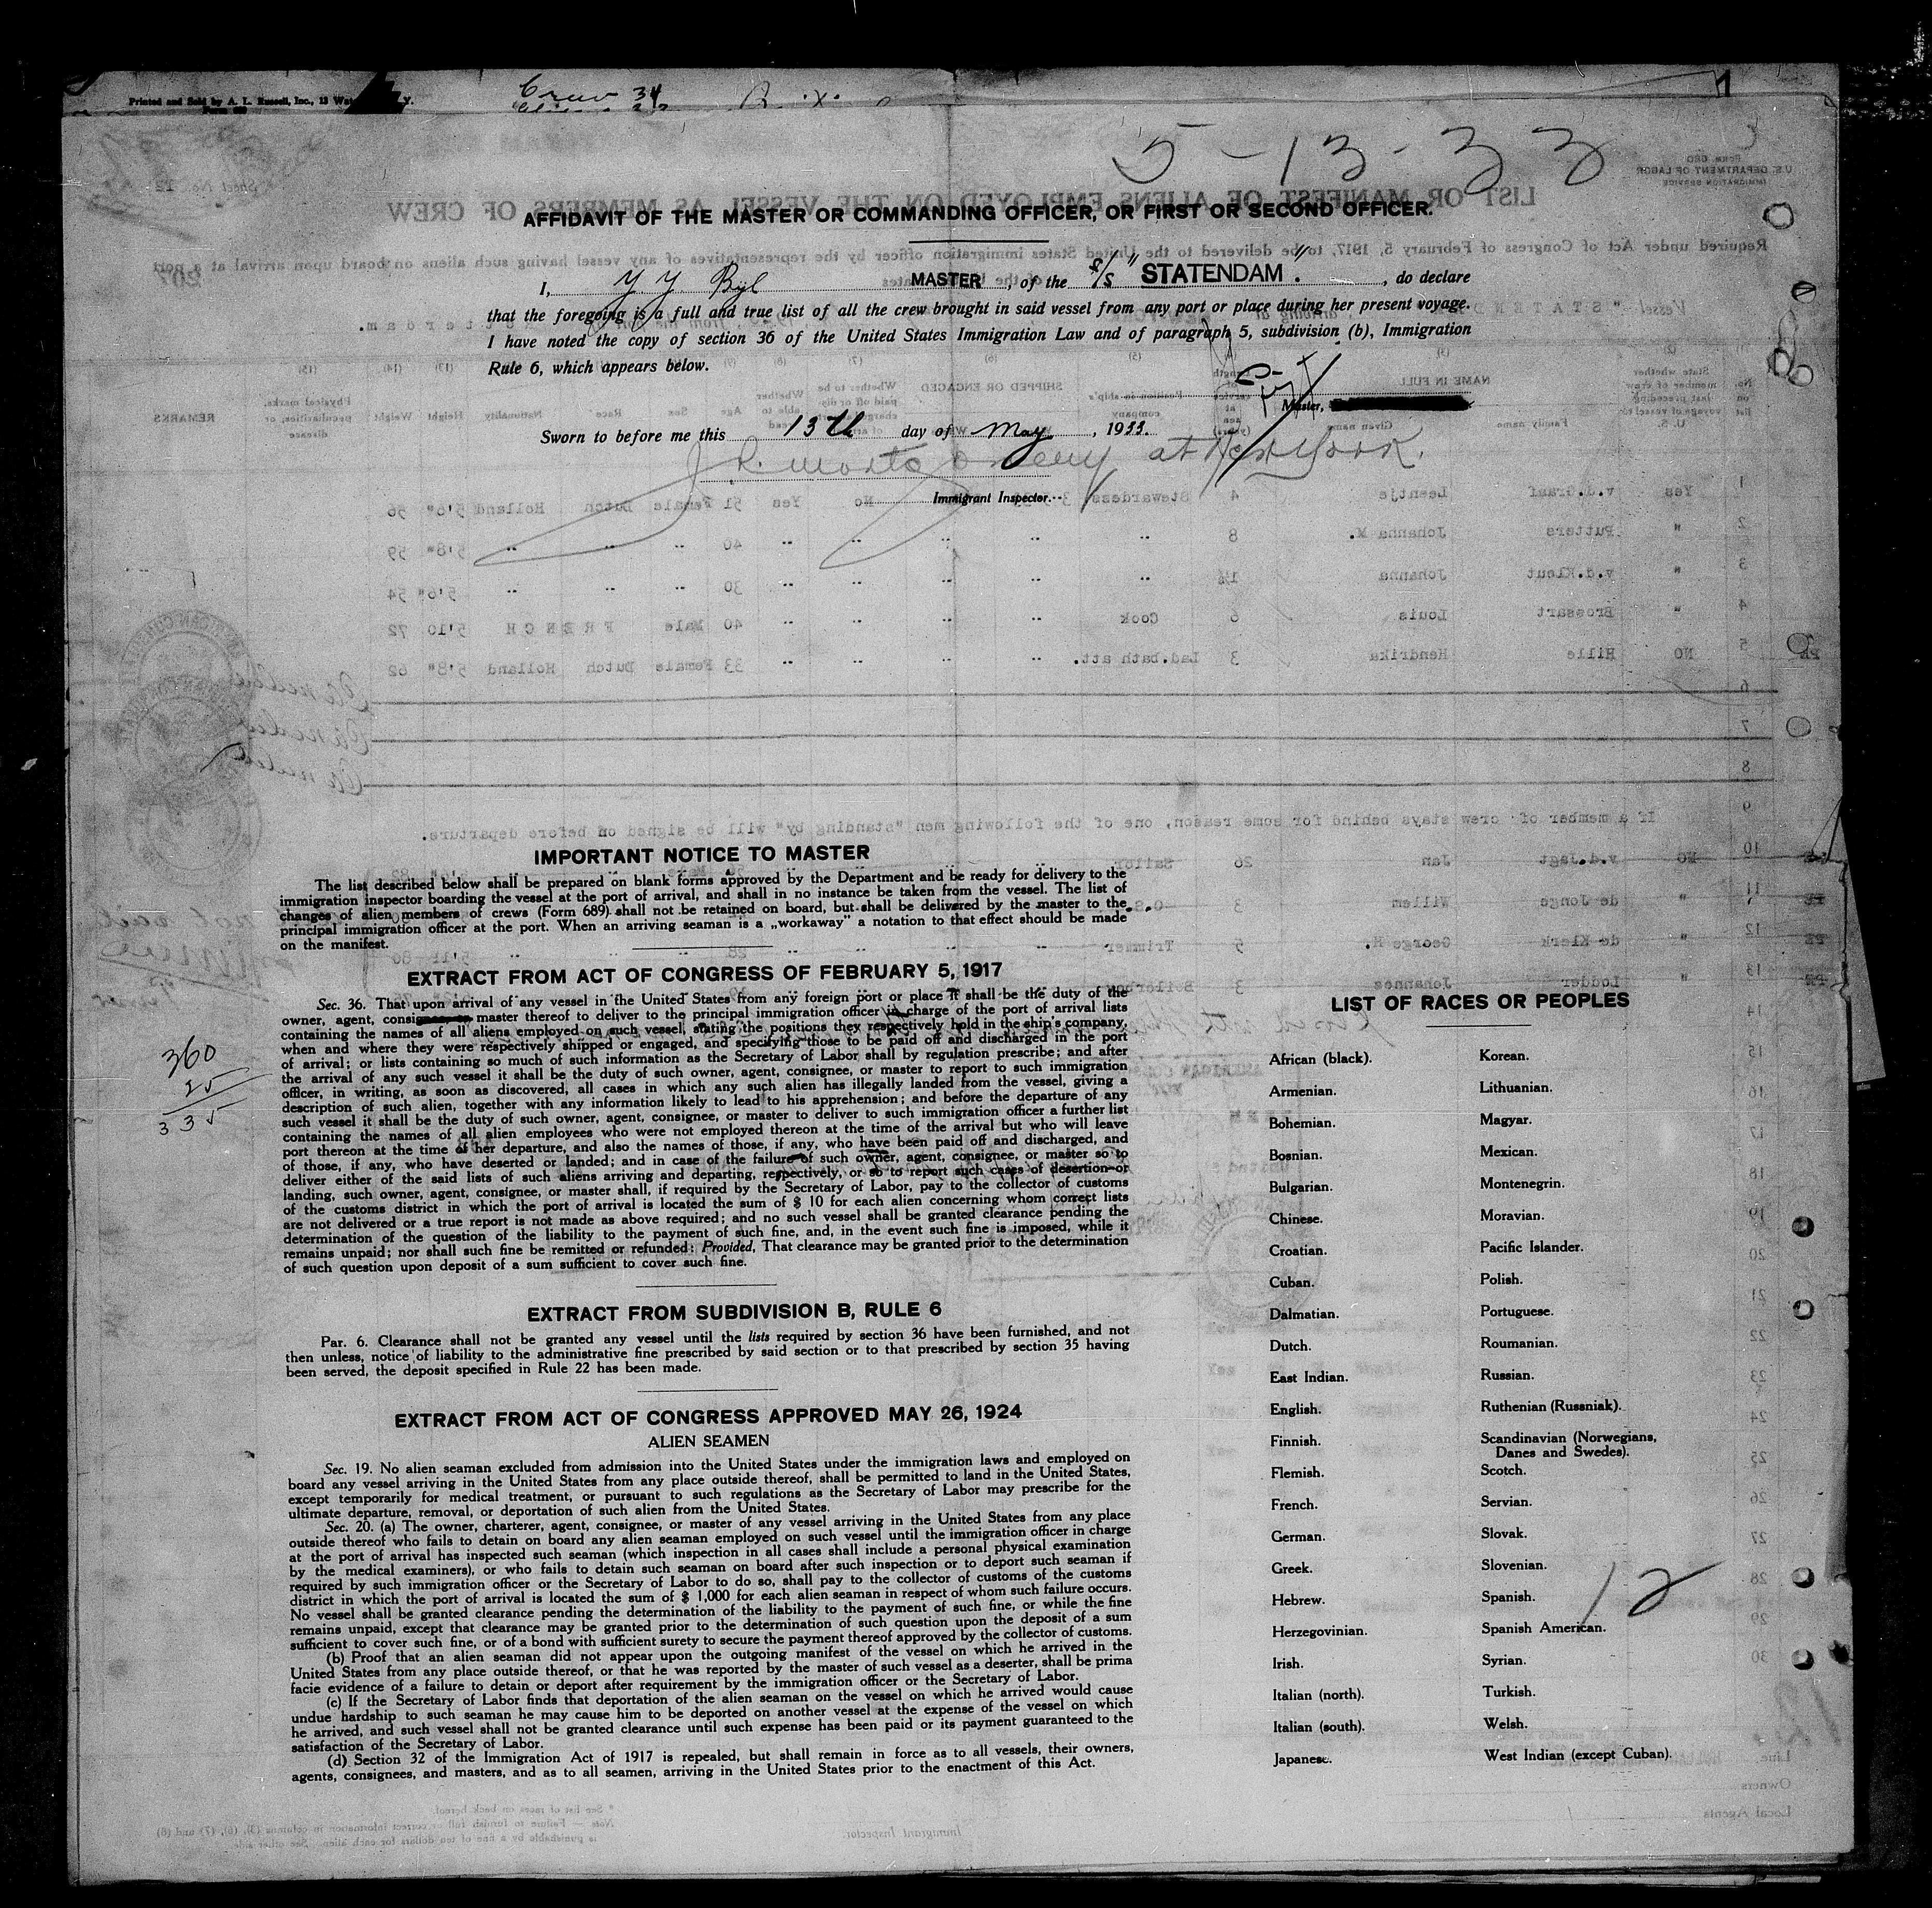 Printed and Sold by A. L. Russell, Inc., 13 Wat Y.
Crew 34
5-13-33
AFFIDAVIT OF THE MASTER OR COMMANDING OFFICER, OR FIRST OR SECOND OFFICER.
I, Y Y Byl MASTER, of the S/S "STATENDAM". , do declare
that the foregoing is a full and true list of all the crew brought in said vessel from any port or place during her present voyage.
I have noted the copy of section 36 of the United States Immigration Law and of paragraph 5, subdivision (b), Immigration
Rule 6, which appears below.
Master,
Sworn to before me this 13th day of May, 1933.
at New York.
Immigrant Inspector.
IMPORTANT NOTICE TO MASTER
The list described below shall be prepared on blank forms approved by the Department and be ready for delivery to the
immigration inspector boarding the vessel at the port of arrival, and shall in no instance be taken from the vessel. The list of
changes of alien members of crews (Form 689) shall not be retained on board, but shall be delivered by the master to the
principal immigration officer at the port. When an arriving seaman is a „workaway" a notation to that effect should be made
on the manifest.
EXTRACT FROM ACT OF CONGRESS OF FEBRUARY 5, 1917
Sec. 36. That upon arrival of any vessel in the United States from any foreign port or place it shall be the duty of the
owner, agent, consignee, or master thereof to deliver to the principal immigration officer in charge of the port of arrival lists
containing the names of all aliens employed on such vessel, stating the positions they respectively hold in the ship's company,
when and where they were respectively shipped or engaged, and specifying those to be paid off and discharged in the port
of arrival; or lists containing so much of such information as the Secretary of Labor shall by regulation prescribe; and after
the arrival of any such vessel it shall be the duty of such owner, agent, consignee, or master to report to such immigration
officer, in writing, as soon as discovered, all cases in which any such alien has illegally landed from the vessel, giving a
description of such alien, together with any information likely to lead to his apprehension; and before the departure of any
such vessel it shall be the duty of such owner, agent, consignee, or master to deliver to such immigration officer a further list
containing the names of all alien employees who were not employed thereon at the time of the arrival but who will leave
port thereon at the time of her departure, and also the names of those, if any, who have been paid off and discharged, and
of those, if any, who have deserted or landed; and in case of the failure of such owner, agent, consignee, or master so to
deliver either of the said lists of such aliens arriving and departing, respectively, or so to report such cases of desertion or
landing, such owner, agent, consignee, or master shall, if required by the Secretary of Labor, pay to the collector of customs
of the customs district in which the port of arrival is located the sum of $ 10 for each alien concerning whom correct lists
are not delivered or a true report is not made as above required; and no such vessel shall be granted clearance pending the
determination of the question of the liability to the payment of such fine, and, in the event such fine is imposed, while it
remains unpaid; nor shall such fine be remitted or refunded: Provided, That clearance may be granted prior to the determination
of such question upon deposit of a sum sufficient to cover such fine.
360
25
335
EXTRACT FROM SUBDIVISION B, RULE 6
Par. 6. Clearance shall not be granted any vessel until the lists required by section 36 have been furnished, and not
then unless, notice of liability to the administrative fine prescribed by said section or to that prescribed by section 35 having
been served, the deposit specified in Rule 22 has been made.
EXTRACT FROM ACT OF CONGRESS APPROVED MAY 26, 1924
ALIEN SEAMEN
Sec. 19. No alien seaman excluded from admission into the United States under the immigration laws and employed on
board any vessel arriving in the United States from any place outside thereof, shall be permitted to land in the United States,
except temporarily for medical treatment, or pursuant to such regulations as the Secretary of Labor may prescribe for the
ultimate departure, removal, or deportation of such alien from the United States.
Sec. 20. (a) The owner, charterer, agent, consignee, or master of any vessel arriving in the United States from any place
outside thereof who fails to detain on board any alien seaman employed on such vessel until the immigration officer in charge
at the port of arrival has inspected such seaman (which inspection in all cases shall include a personal physical examination
by the medical examiners), or who fails to detain such seaman on board after such inspection or to deport such seaman if
required by such immigration officer or the Secretary of Labor to do so, shall pay to the collector of customs of the customs
district in which the port of arrival is located the sum of $ 1,000 for each alien seaman in respect of whom such failure occurs.
No vessel shall be granted clearance pending the determination of the liability to the payment of such fine, or while the fine
remains unpaid, except that clearance may be granted prior to the determination of such question upon the deposit of a sum
sufficient to cover such fine, or of a bond with sufficient surety to secure the payment thereof approved by the collector of customs.
(b) Proof that an alien seaman did not appear upon the outgoing manifest of the vessel on which he arrived in the
United States from any place outside thereof, or that he was reported by the master of such vessel as a deserter, shall be prima
facie evidence of a failure to detain or deport after requirement by the immigration officer or the Secretary of Labor.
(c) If the Secretary of Labor finds that deportation of the alien seaman on the vessel on which he arrived would cause
undue hardship to such seaman he may cause him to be deported on another vessel at the expense of the vessel on which
he arrived, and such vessel shall not be granted clearance until such expense has been paid or its payment guaranteed to the
satisfaction of the Secretary of Labor.
(d) Section 32 of the Immigration Act of 1917 is repealed, but shall remain in force as to all vessels, their owners,
agents, consignees, and masters, and as to all seamen, arriving in the United States prior to the enactment of this Act.
LIST OF RACES OR PEOPLES
African (black).
Armenian.
Bohemian.
Bosnian.
Bulgarian.
Chinese.
Croatian.
Cuban.
Dalmatian.
Dutch.
East Indian.
English.
Finnish.
Flemish.
French.
German.
Greek.
Hebrew.
Herzegovinian.
Irish.
Italian (north).
Italian (south).
Japanese.
Korean.
Lithuanian.
Magyar.
Mexican.
Montenegrin.
Moravian.
Pacific Islander.
Polish.
Portuguese.
Roumanian.
Russian.
Ruthenian (Russniak).
Scandinavian (Norwegians,
Danes and Swedes).
Scotch.
Servian.
Slovak.
Slovenian.
Spanish.
Spanish American.
Syrian.
Turkish.
Welsh.
West Indian (except Cuban).
12